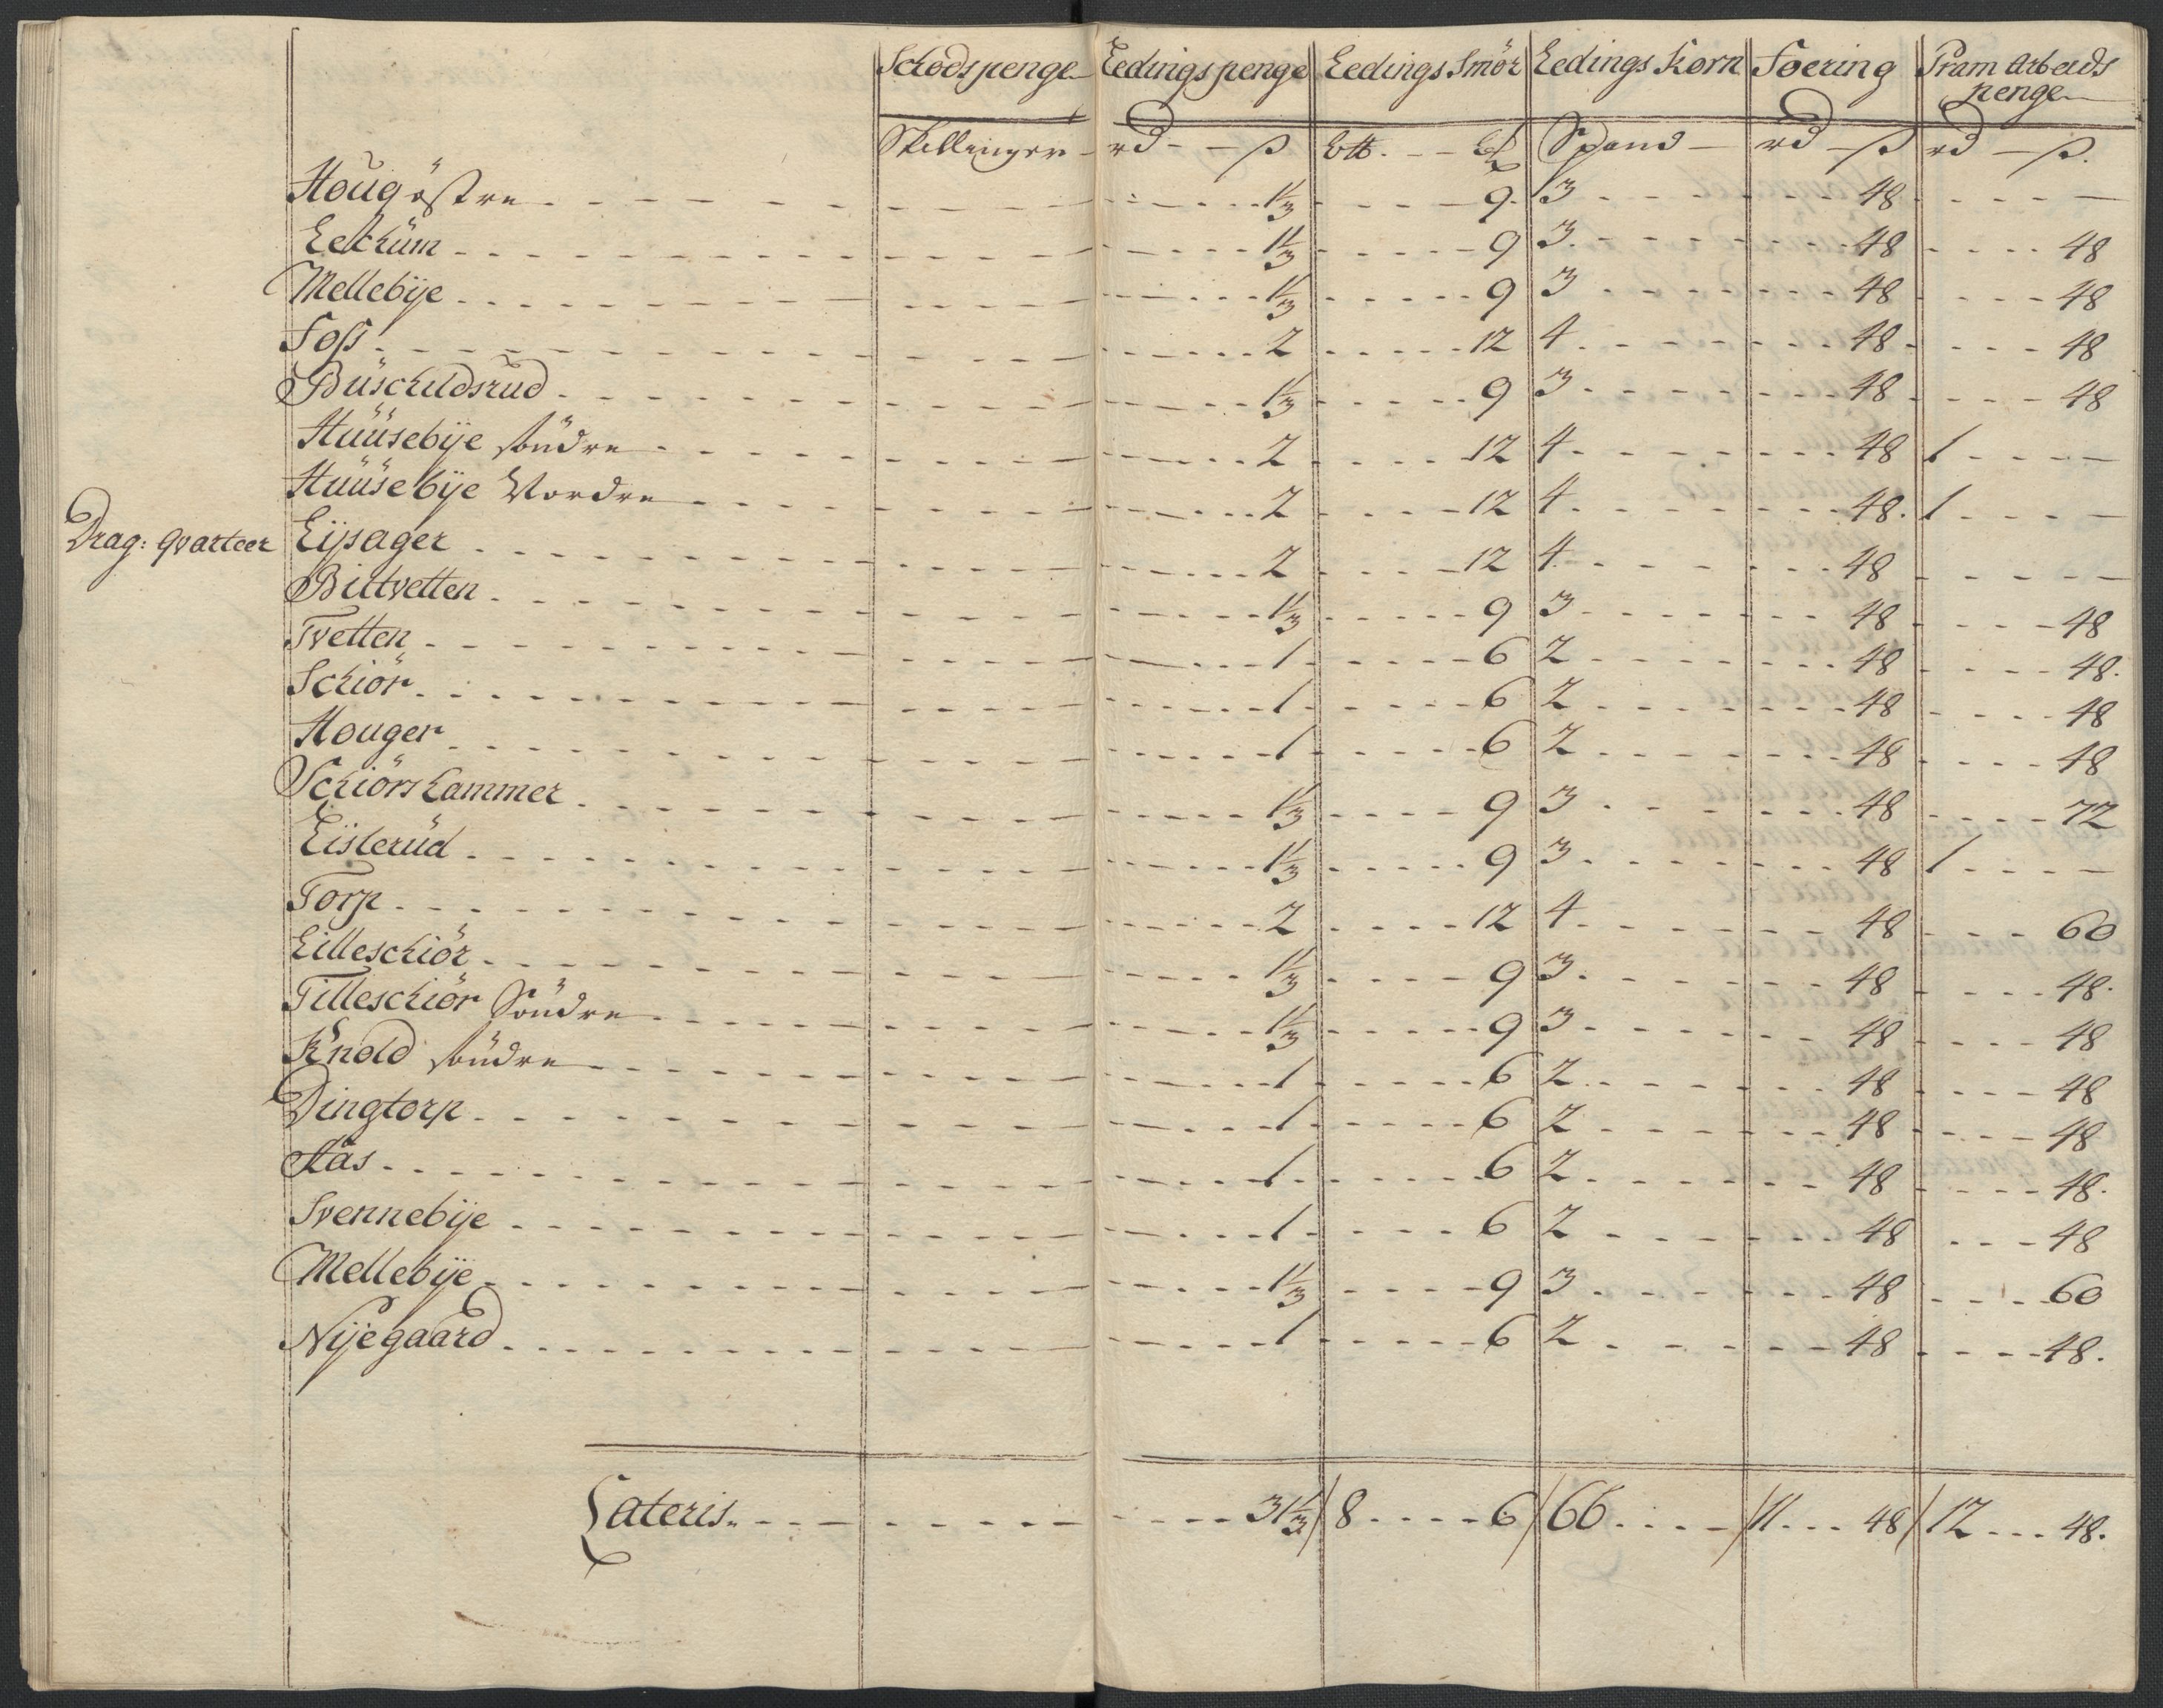 Schodspenge Ledingspenge Ledings Smör Ledings Korn Foering Pram Arbeids
penge
Skillinger rd ß ß rd ß rd ß
Houg östre 1⅓ 9 3 48 —
Lekum 1⅓ 9 3 48 48
Mellebÿe 1⅓ 9 3 48 48
Foss 2 12 4 48 48
Buschildsrud 1⅓ 9 3 48 48
Huusebÿe söndre 2 12 4 48 1 —
Huusebÿe Nordre 2 12 4 48 1 —
Drag: qvarteer Eÿsager 2 12 4 48 —
Bittvetten 1⅓ 9 3 48 48
Tvetten 1 6 2 48 48
Schiör 1 6 2 48 48
Houger 1 6 2 48 48
Schiörshammer 1⅓ 9 3 48 72
Eisterud 1⅓ 9 3 48 1 —
Torp 2 12 4 48 60
Lilleschiör 1⅓ 9 3 48 48
Tilleschiör Söndre 1⅓ 9 3 48 48
Knold söndre 1 6 2 48 48
Dingtorp 1 6 2 48 48
Aas 1 6 2 48 48
Svennebÿe 1 6 2 48 48
Mellebÿe 1⅓ 9 3 48 60
Nÿegaard 1 6 2 48 48
Lateris 31⅓ 8 6 66 11 48 12 48